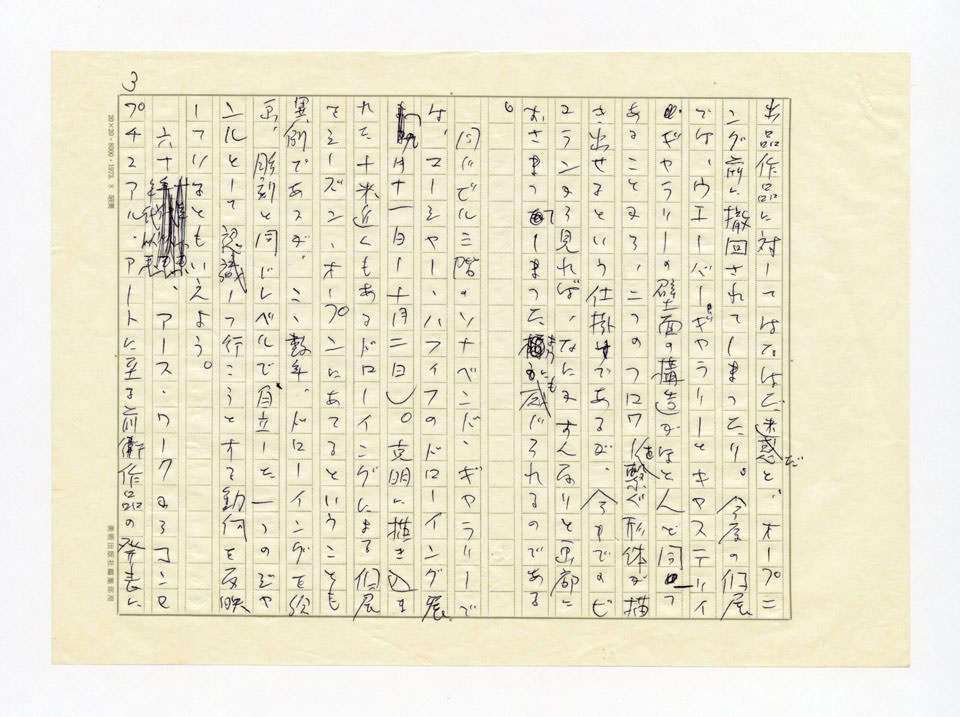 出品作品に対してはではだ迷惑だと、オープニ
ング前に撤回されてしまったり。今度の個展
では、ウエーバー・ギャラリーとキャステリイ
・ギャラリーの壁面の構造がなと人ど同じで
あることから、二つのフロワーを繋ぐ形体が描
き出せるという仕掛けであるが、今までのビ
コランから見れば、なにかすんなりと画廊に
おさまってしまった にも感じられるのである
。
同じビル三階のソナベンド・ギャラリーで
は、マーシャー・ハフィフのドローイング展
(九月十一日ー十月二日)。克明に描き込ま
れた十米近くもあるドローイングによる個展
でシーズン・オープンにあてるということも
異例であるが、ここ数年、ドローイングを絵
画、彫刻と同じレベルで自立した一つのジャ
ンルとして認識して行こうとする動向を反映
しているともいえよう。
六十年代以来、アース・ワークからコンセ
プチュアル・アートに至る前衛作品の発表に
3
20×20・6000・1973. 3